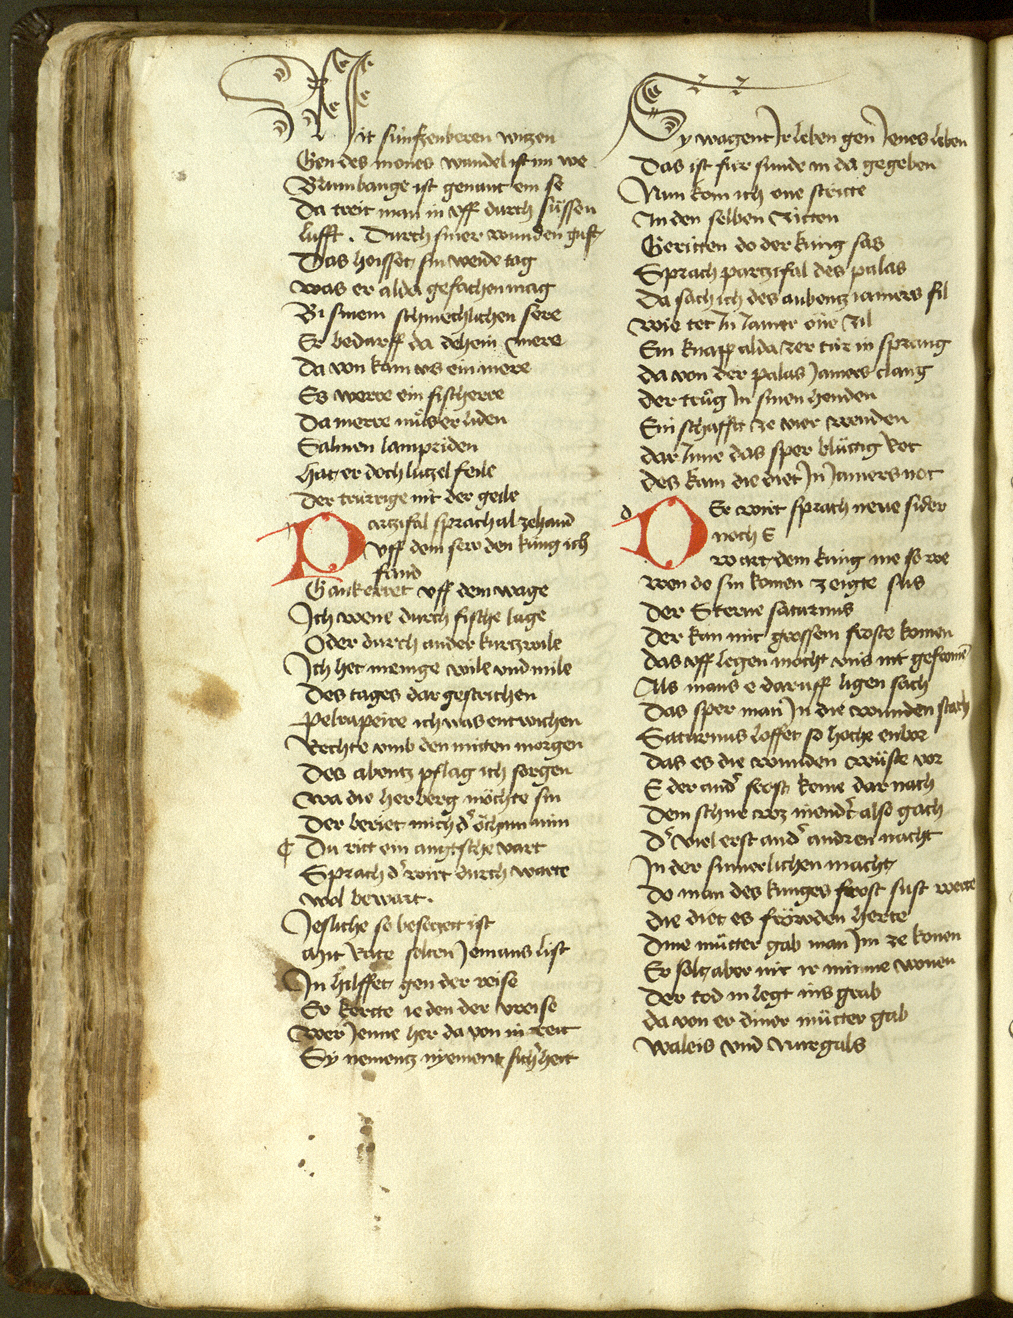 Mit súnfzenberen witzen
Gen des mones wandel ist im we
Brumbange ist genant ein se
Da treit man in vff durch süssen
lufft . Durch siner wunden gust
Das heisset sin weide tag
was er alda gefachen mag
Bi sinem schmechlichen sere
Er bedarff da dehein mere
Da von kam vs ein mere
Es werre ein fischerre
Da merre müs er liden
Salmen lampriden
Hat er doch lutzel feile
Der trurrige nit der geile
Partzifal sprach al zehand
vff dem sew den küng ich
fand
Gankerret vff dem wage
Ich wene durch fische lage
Oder durch ander kurtzwile
Ich het menge wile vnd mile
Des tages dar gestrichen
Pelrapeire ich was entwichen
Rechte vmb den mitten morgen
Des abentz pflag ich sorgen
wa die herberg möchte sin
Der beriet mich d' öcham min
Du ritt ein angtsche vart
Sprach d' wirt durch warte
wol bewart .
Iesliche so besetzett ist
Mit Rate selten Iemans list
In hilffet gen der reise
Er kerte ie den der vreise
Wer Ienne her da von in reit
Sy nementz nyement sicherheit
Sy wagent Ir leben gen Ienes leben
Das ist fúr sunde in da gegeben
Nun kom ich one stritte
In den selben Zitten
Geritten do der küng sas
Sprach partzifal des palas
Da sach ich des aubentz iamers fil
wie tet In Iamer one zil
Ein knapp alda zer túr in sprang
da von der palas Iamers clang
der trüg In sinen henden
Ein schafftt ze vier wenden
dar Inne das sper blütig Rot
des kam die diet In Iamers not
Der wirt sprach neue sider
noch E
wart dem kúng nie so we
wen do sin komen zeigte sus
der Sterne saturnus
der kan mit grossem froste komen
das vff legen mocht vns nit gefromen
Als mans e daruff ligen sach
Das sper man In die wunden stach
Saturnus loffet so hoche enbor
das es die wunden wüste vor
E der and' frost keme dar nach
Dem schne waz niendert also gach
D' viel erst and' andren nacht
In der sumerlichen macht
Do man des kunges frost sust werte
die diet es fröwden herte
Dine mütter gab man Im ze konen
Er solt aber nit ir minne wonen
der tod in legt ins grab
da von er diner mütter gab
waleis vnd nurgals